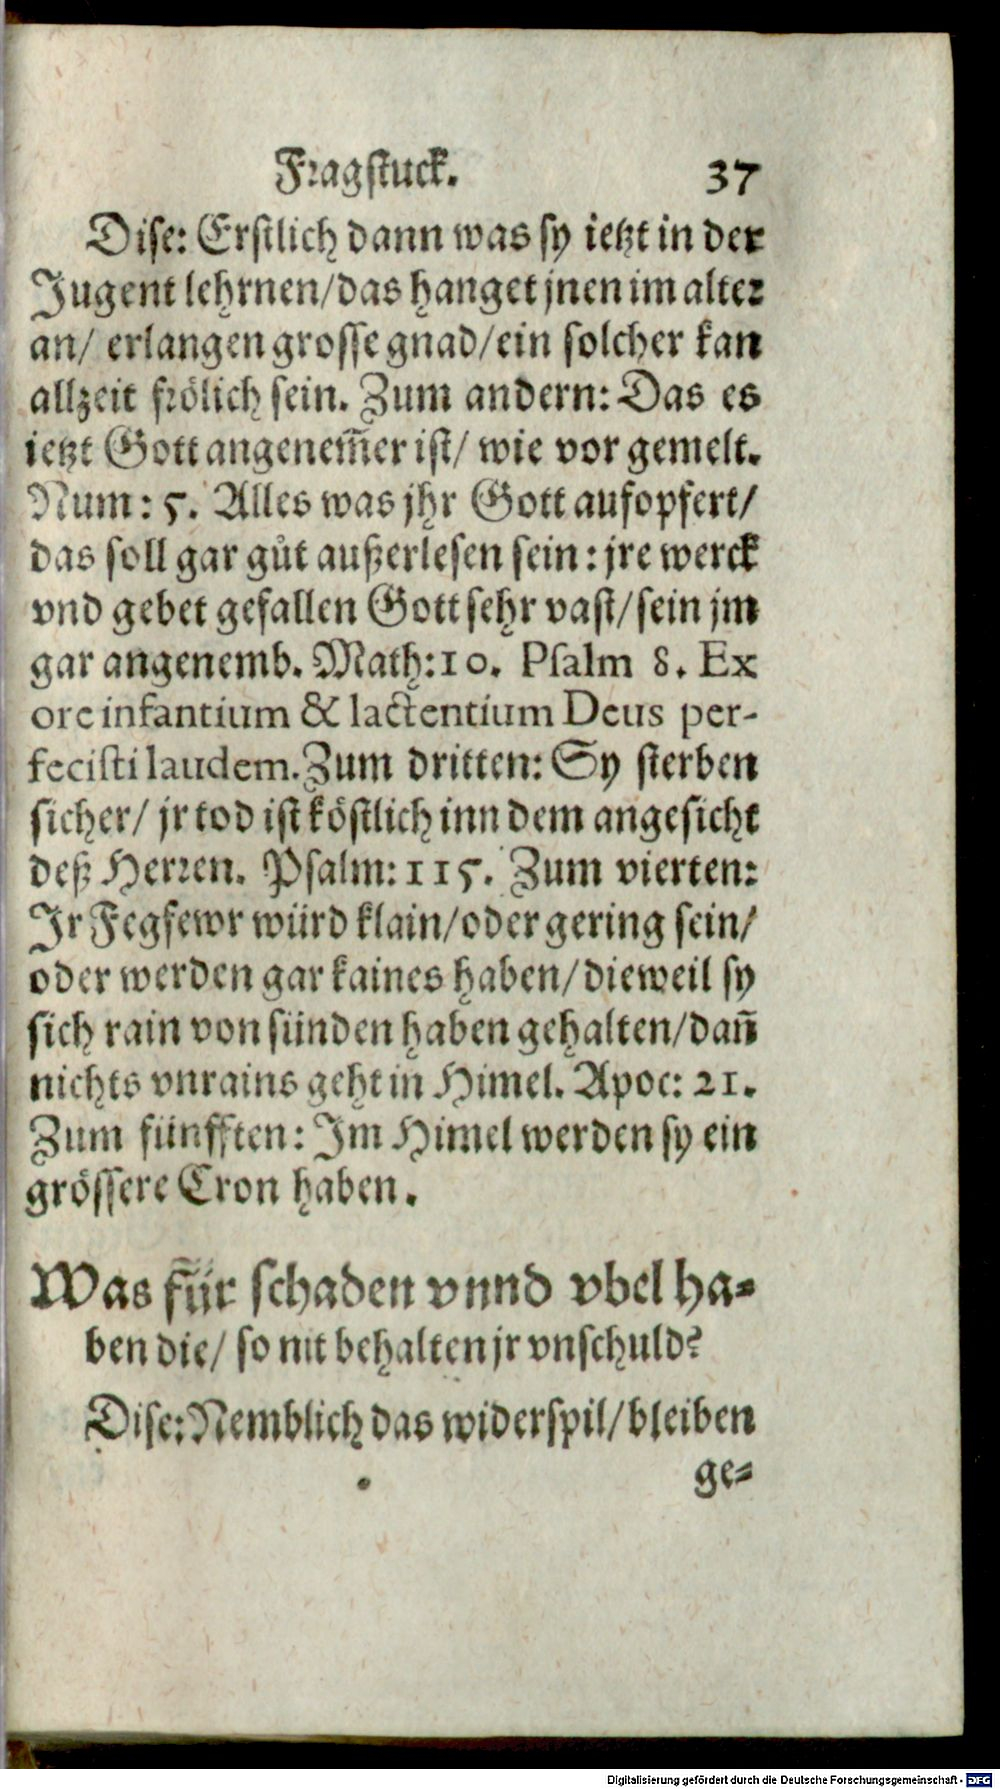 Fragstuck. 37
Dise: Erstlich dann was sy ietzt in der
Jugent lehrnen/das hanget jnen im alter
an/ erlangen grosse gnad/ein solcher kan
allzeit frölich sein. Zum andern: Das es
ietzt Gott angenem̃er ist/ wie vor gemelt.
Num: 5. Alles was jhr Gott aufopfert/
das soll gar gůt außerlesen sein: jre werck
vnd gebet gefallen Gott sehr vast/sein jm
gar angenemb. Math:10. Psalm 8. Ex
ore infantium & lactentium Deus per-
fecisti laudem. Zum dritten: Sy sterben
sicher/ jr tod ist köstlich inn dem angesicht
deß Herren. Psalm: 115. Zum vierten:
Jr Fegfewr würd klain/oder gering sein/
oder werden gar kaines haben/dieweil sy
sich rain von sünden haben gehalten/dañ
nichts vnrains geht in Himel. Apoc: 21.
Zum fünfften: Jm Himel werden sy ein
grössere Cron haben.
Was für schaden vnnd vbel ha-
ben die/ so nit behalten jr vnschuld?
Dise: Nemblich das widerspil/bleiben
ge-
Digitalisierung gefördert durch die Deutsche Forschungsgemeinschaft - DFG